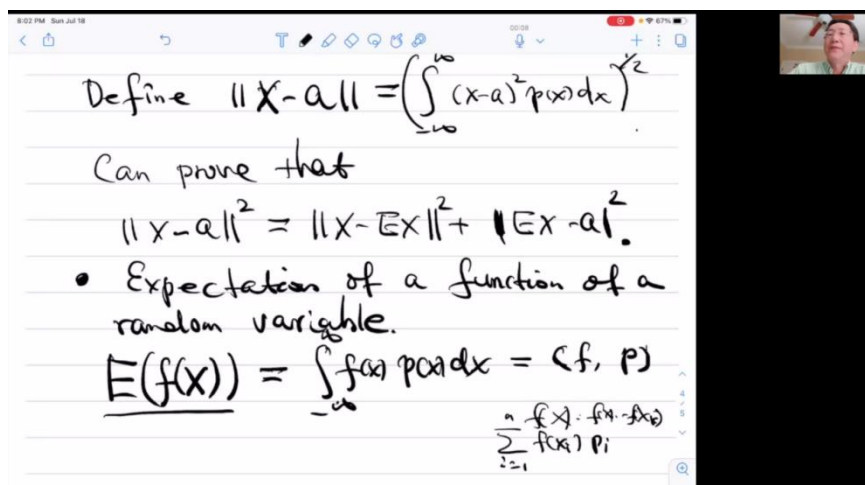 8:02 PM Sun Jul 18
00:58
67%
Define ||X-a|| = (∫_{-∞}^{∞} (x-a)² p(x) dx)^{1/2}.
Can prove that
||X-a||² = ||X-EX||² + |EX-a|².
• Expectation of a function of a
random variable.
E(f(X)) = ∫_{-∞}^{∞} f(x) p(x) dx = (f, p)
∑_{i=1}^{n} f(x_i) p_i
4
5